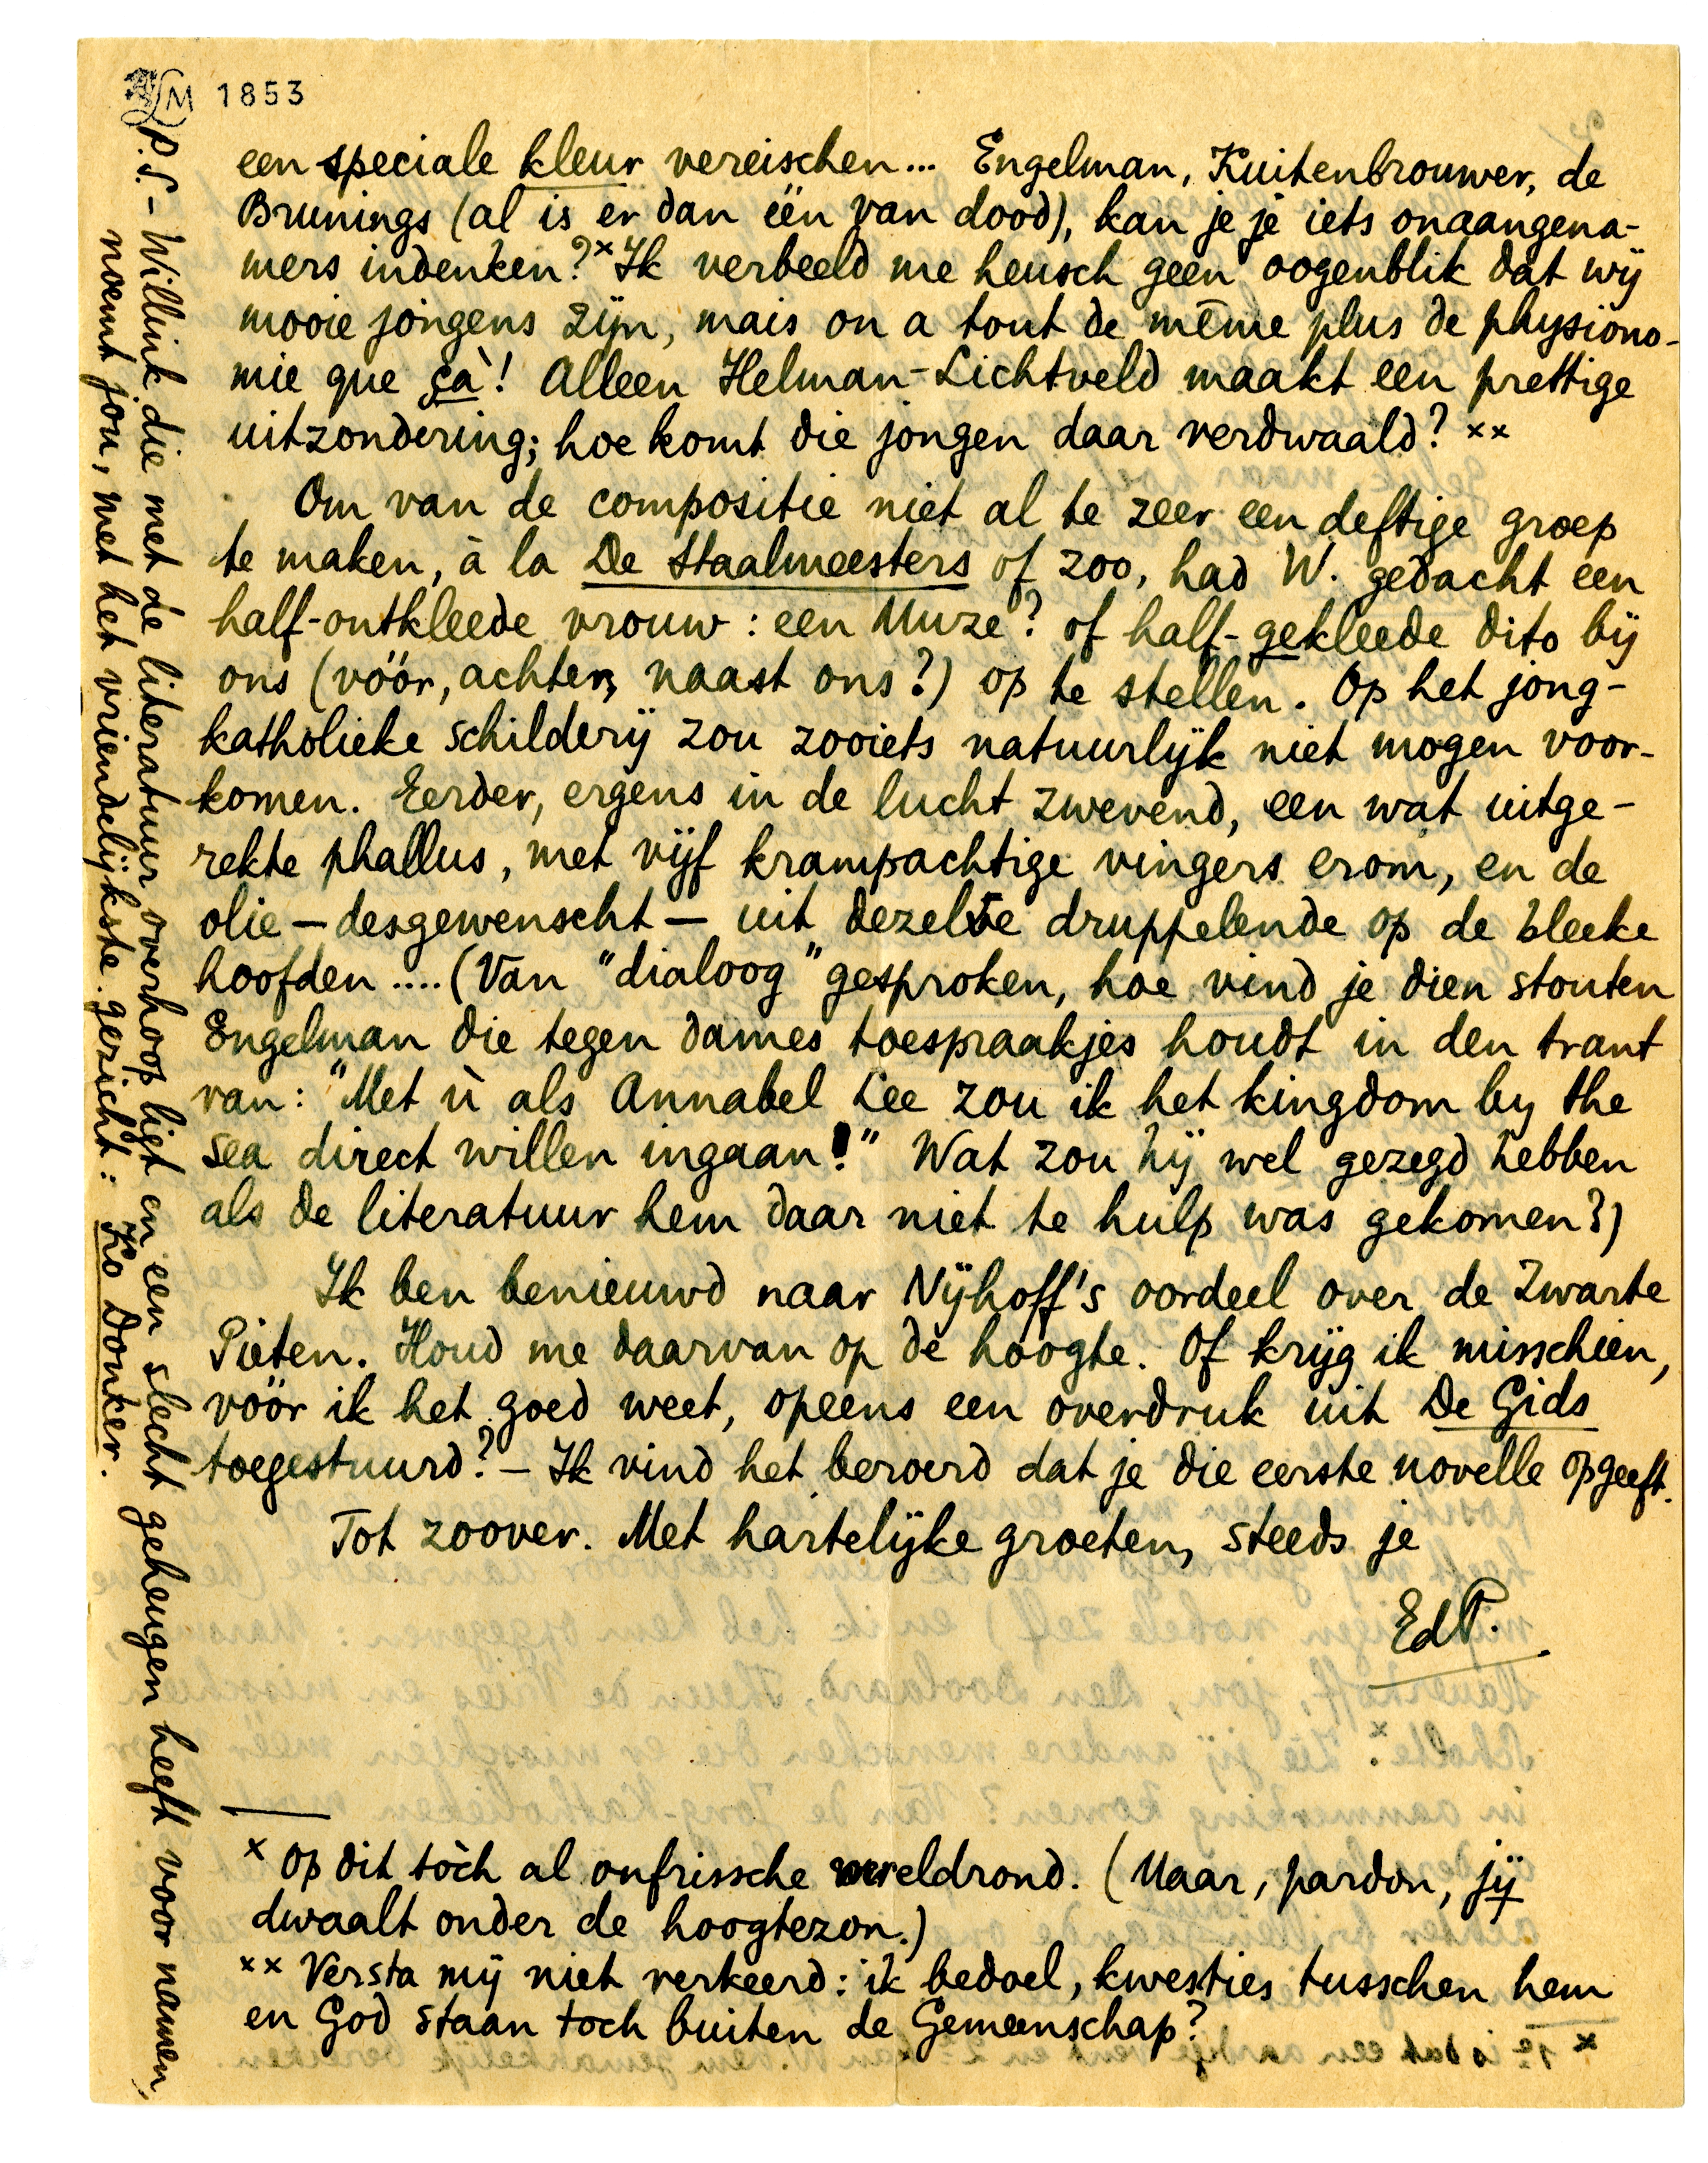 LM 1853
een speciale kleur vereischen... Engelman, Kuitenbrouwer, de
Brunings (al is er dan één van dood), kan je je iets onaangena-
mers indenken?ˣ Ik verbeeld me heusch geen oogenblik dat wij
mooie jongens zijn, mais on a tout de même plus de physiono-
mie que ça! Alleen Helman-Lichtveld maakt een prettige
uitzondering; hoe komt die jongen daar verdwaald? ˣˣ
Om van de compositie niet al te zeer een deftige groep
te maken, à la De Staalmeesters of zoo, had W. gedacht een
half-ontkleede vrouw: een Muze? of half-gekleede dito bij
ons (vóór, achter, naast ons?) op te stellen. Op het jong-
katholieke schilderij zou zooiets natuurlijk niet mogen voor-
komen. Eerder, ergens in de lucht zwevend, een wat uitge-
rekte phallus, met vijf krampachtige vingers erom, en de
olie – desgewenscht – uit dezelve druppelende op de bleeke
hoofden .... (Van "dialoog" gesproken, hoe vind je dien stouten
Engelman die tegen dames toespraakjes houdt in den trant
van: "Met ù als Annabel Lee zou ik het kingdom by the
sea direct willen ingaan!" Wat zou hij wel gezegd hebben
als de literatuur hem daar niet te hulp was gekomen?)
Ik ben benieuwd naar Nijhoff's oordeel over de Zwarte
Pieten. Houd me daarvan op de hoogte. Of krijg ik misschien,
vóór ik het goed weet, opeens een overdruk uit De Gids
toegestuurd? – Ik vind het beroerd dat je die eerste novelle opgeeft.
Tot zoover. Met hartelijke groeten, steeds je
EdP.
ˣ Op dit tòch al onfrissche wereldrond. (Maar, pardon, jij
dwaalt onder de hoogtezon.)
ˣˣ Versta mij niet verkeerd: ik bedoel, kwesties tusschen hem
en God staan toch buiten de Gemeenschap?
P.S. – Willink die met de literatuur overhoop ligt en een slecht geheugen heeft voor namen,
noemt jou, met het vriendelijkste gezicht: Ko Donker.